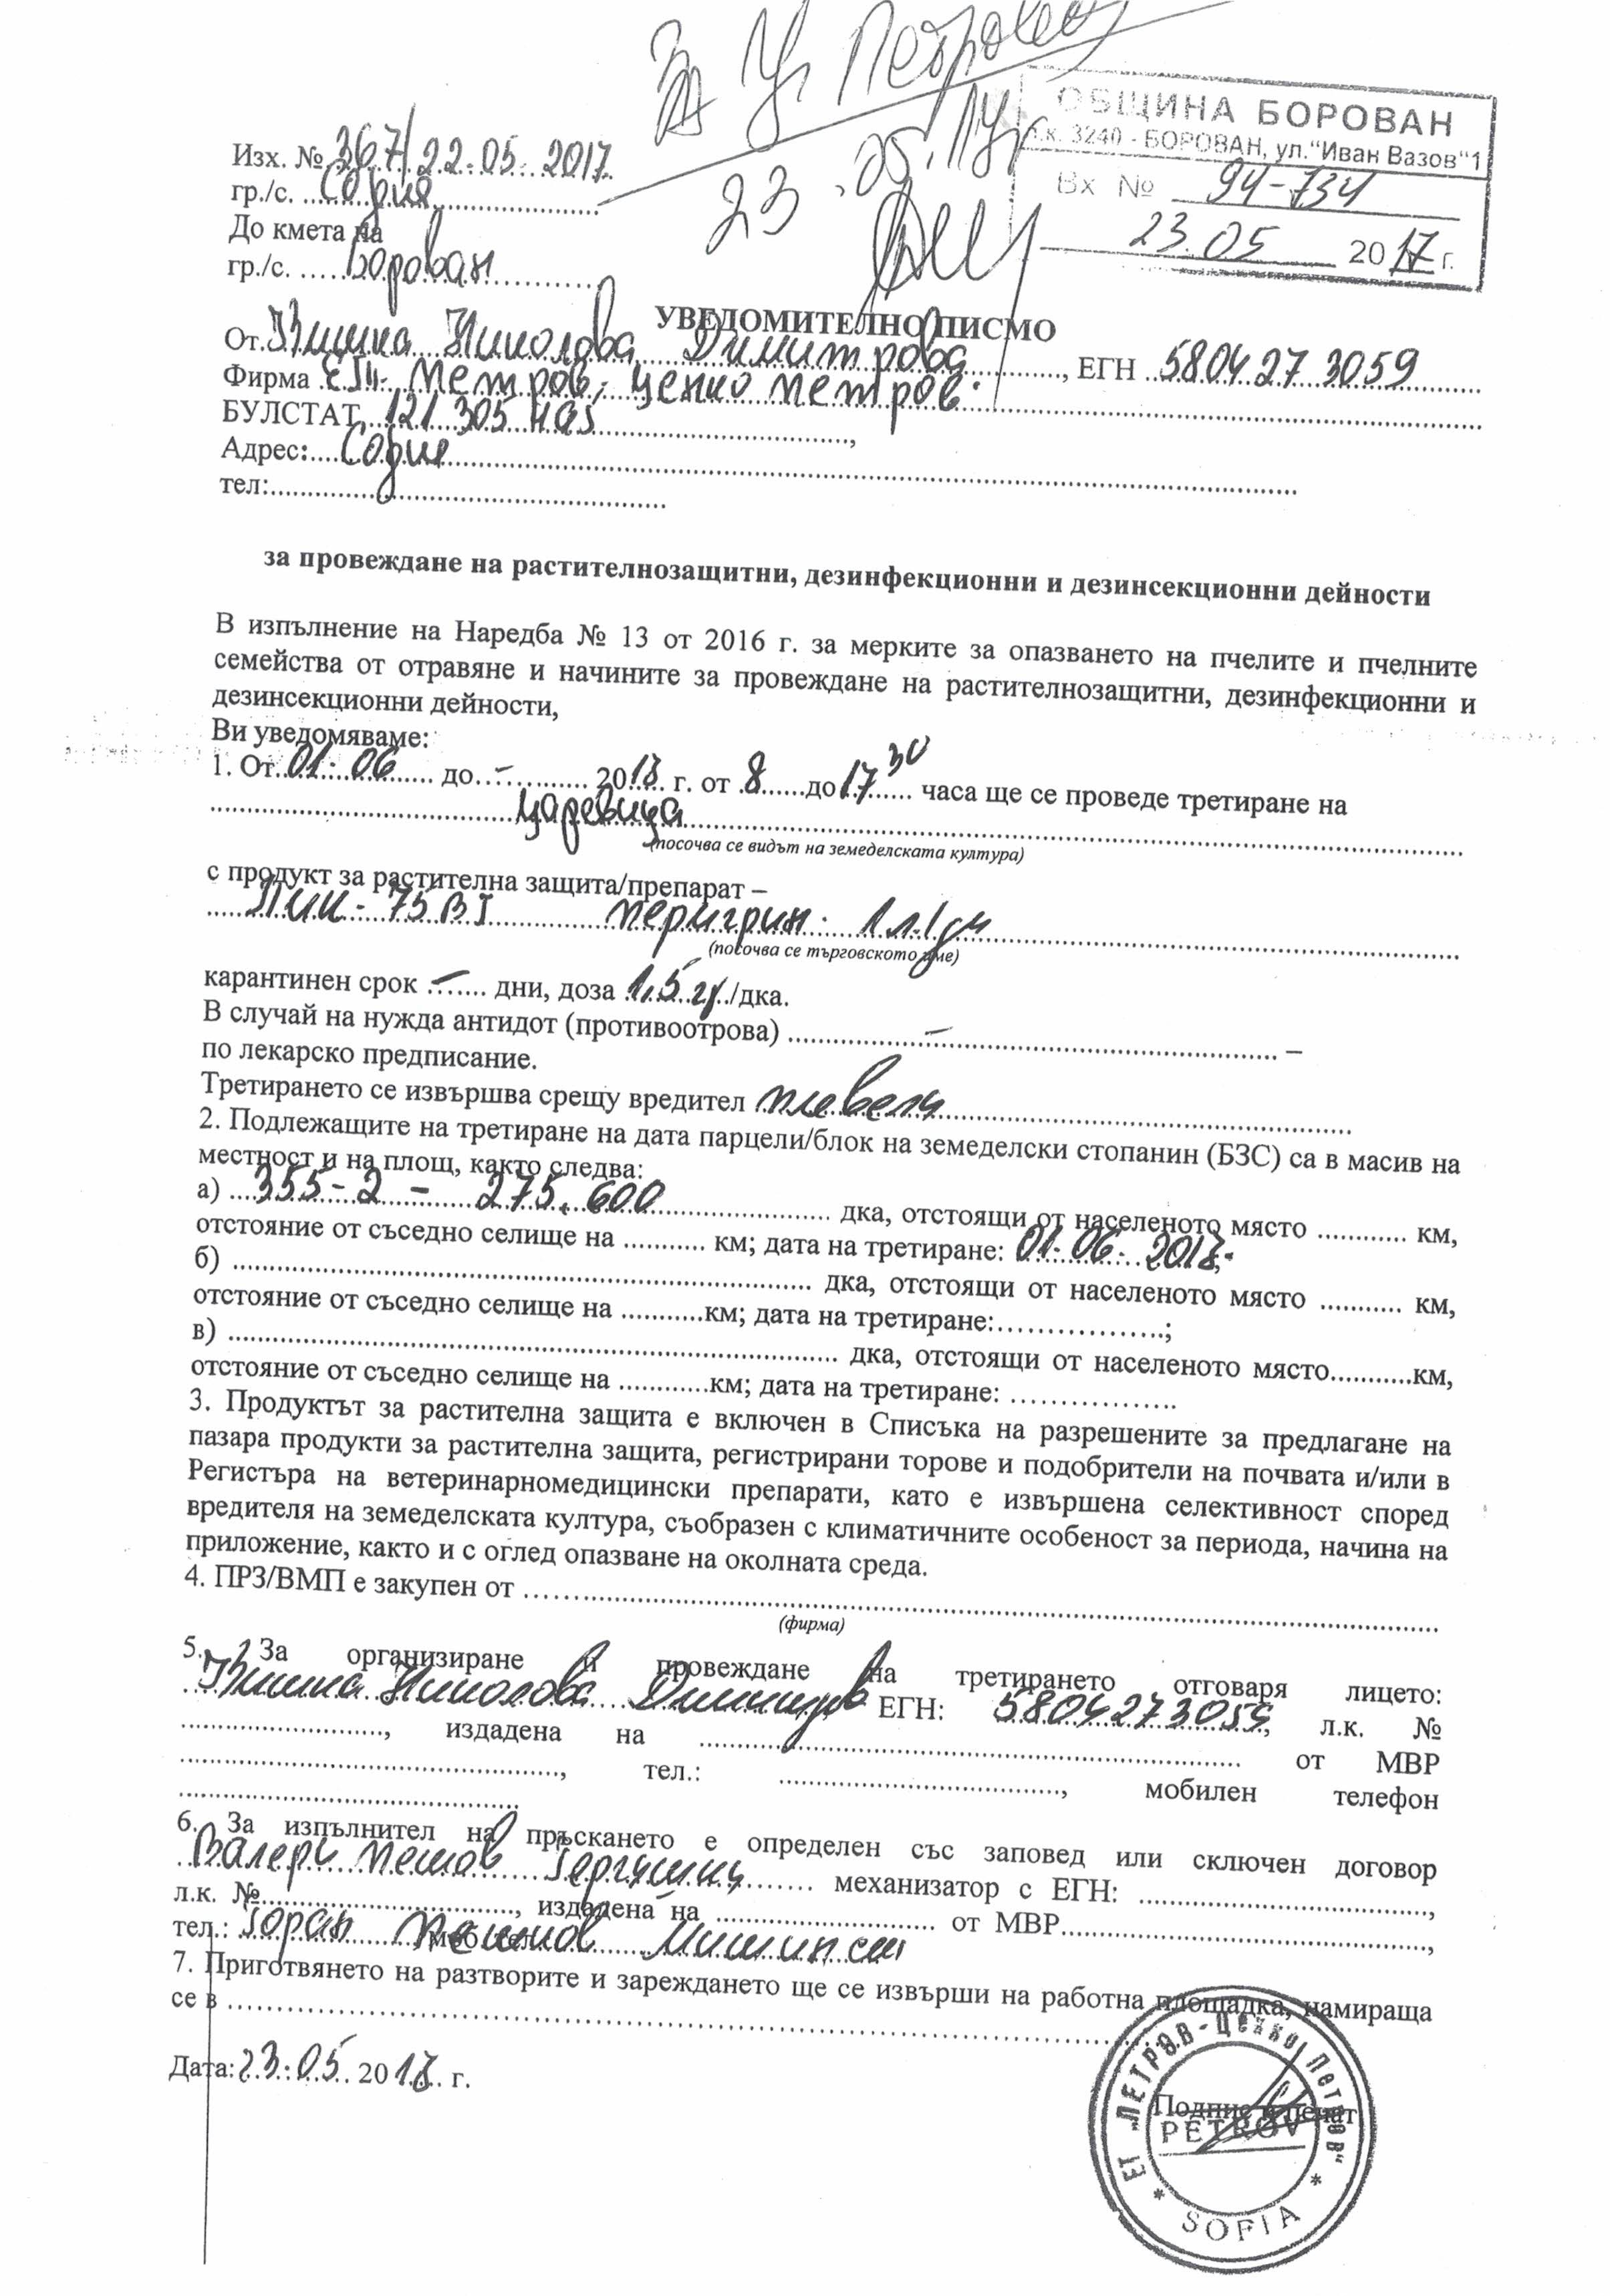 За Цв. Петровски
23.05.17г
ОБЩИНА БОРОВАН
п.к. 3240 - БОРОВАН, ул."Иван Вазов"1
Вх № 94-734
23.05 2017 г.
Изх. № 367/22.05.2017
гр./с. София
До кмета на
гр./с. Борован
УВЕДОМИТЕЛНО ПИСМО
От Николова Димитрова, ЕГН 5804273059
Фирма ЕТ Петров, Ценко Петров
БУЛСТАТ 121 305
Адрес: София
тел:
за провеждане на растителнозащитни, дезинфекционни и дезинсекционни дейности
В изпълнение на Наредба № 13 от 2016 г. за мерките за опазването на пчелите и пчелните
семейства от отравяне и начините за провеждане на растителнозащитни, дезинфекционни и
дезинсекционни дейности,
Ви уведомяваме:
1. От 01.06 до - 2017 г. от 8 до 17 30 часа ще се проведе третиране на
царевица
(посочва се видът на земеделската култура)
с продукт за растителна защита/препарат –
Пик - 75 ВГ перигрин 1 л.
(посочва се търговското име)
карантинен срок - дни, доза 1,5 гр/дка.
В случай на нужда антидот (противоотрова) - –
по лекарско предписание.
Третирането се извършва срещу вредител плевели
2. Подлежащите на третиране на дата парцели/блок на земеделски стопанин (БЗС) са в масив на
местност и на площ, както следва:
а) 355-2 - 275.600 дка, отстоящи от населеното място ............ км,
отстояние от съседно селище на ........... км; дата на третиране: 01.06.2017;
б) ............ дка, отстоящи от населеното място ........... км,
отстояние от съседно селище на ...........км; дата на третиране:.................;
в) ............ дка, отстоящи от населеното място...........км,
отстояние от съседно селище на ............км; дата на третиране: .................
3. Продуктът за растителна защита е включен в Списъка на разрешените за предлагане на
пазара продукти за растителна защита, регистрирани торове и подобрители на почвата и/или в
Регистъра на ветеринарномедицински препарати, като е извършена селективност според
вредителя на земеделската култура, съобразен с климатичните особеност за периода, начина на
приложение, както и с оглед опазване на околната среда.
4. ПРЗ/ВМП е закупен от ............
(фирма)
5. За организиране и провеждане на третирането отговаря лицето:
Николова Димитрова ЕГН: 5804273059, л.к. №
............, издадена на ............ от МВР
............, тел.: ............, мобилен телефон
............
6. За изпълнител на пръскането е определен със заповед или сключен договор
Валери Пешов механизатор с ЕГН: ............,
л.к. №............, издадена на ............ от МВР............,
тел.: Горан Пешов
7. Приготвянето на разтворите и зареждането ще се извърши на работна площадка, намираща
се в ............
Дата: 23.05.2017 г.
Подпис и печат
ЕТ "ПЕТРОВ - Ценко Петров"
PETROV
* SOFIA *